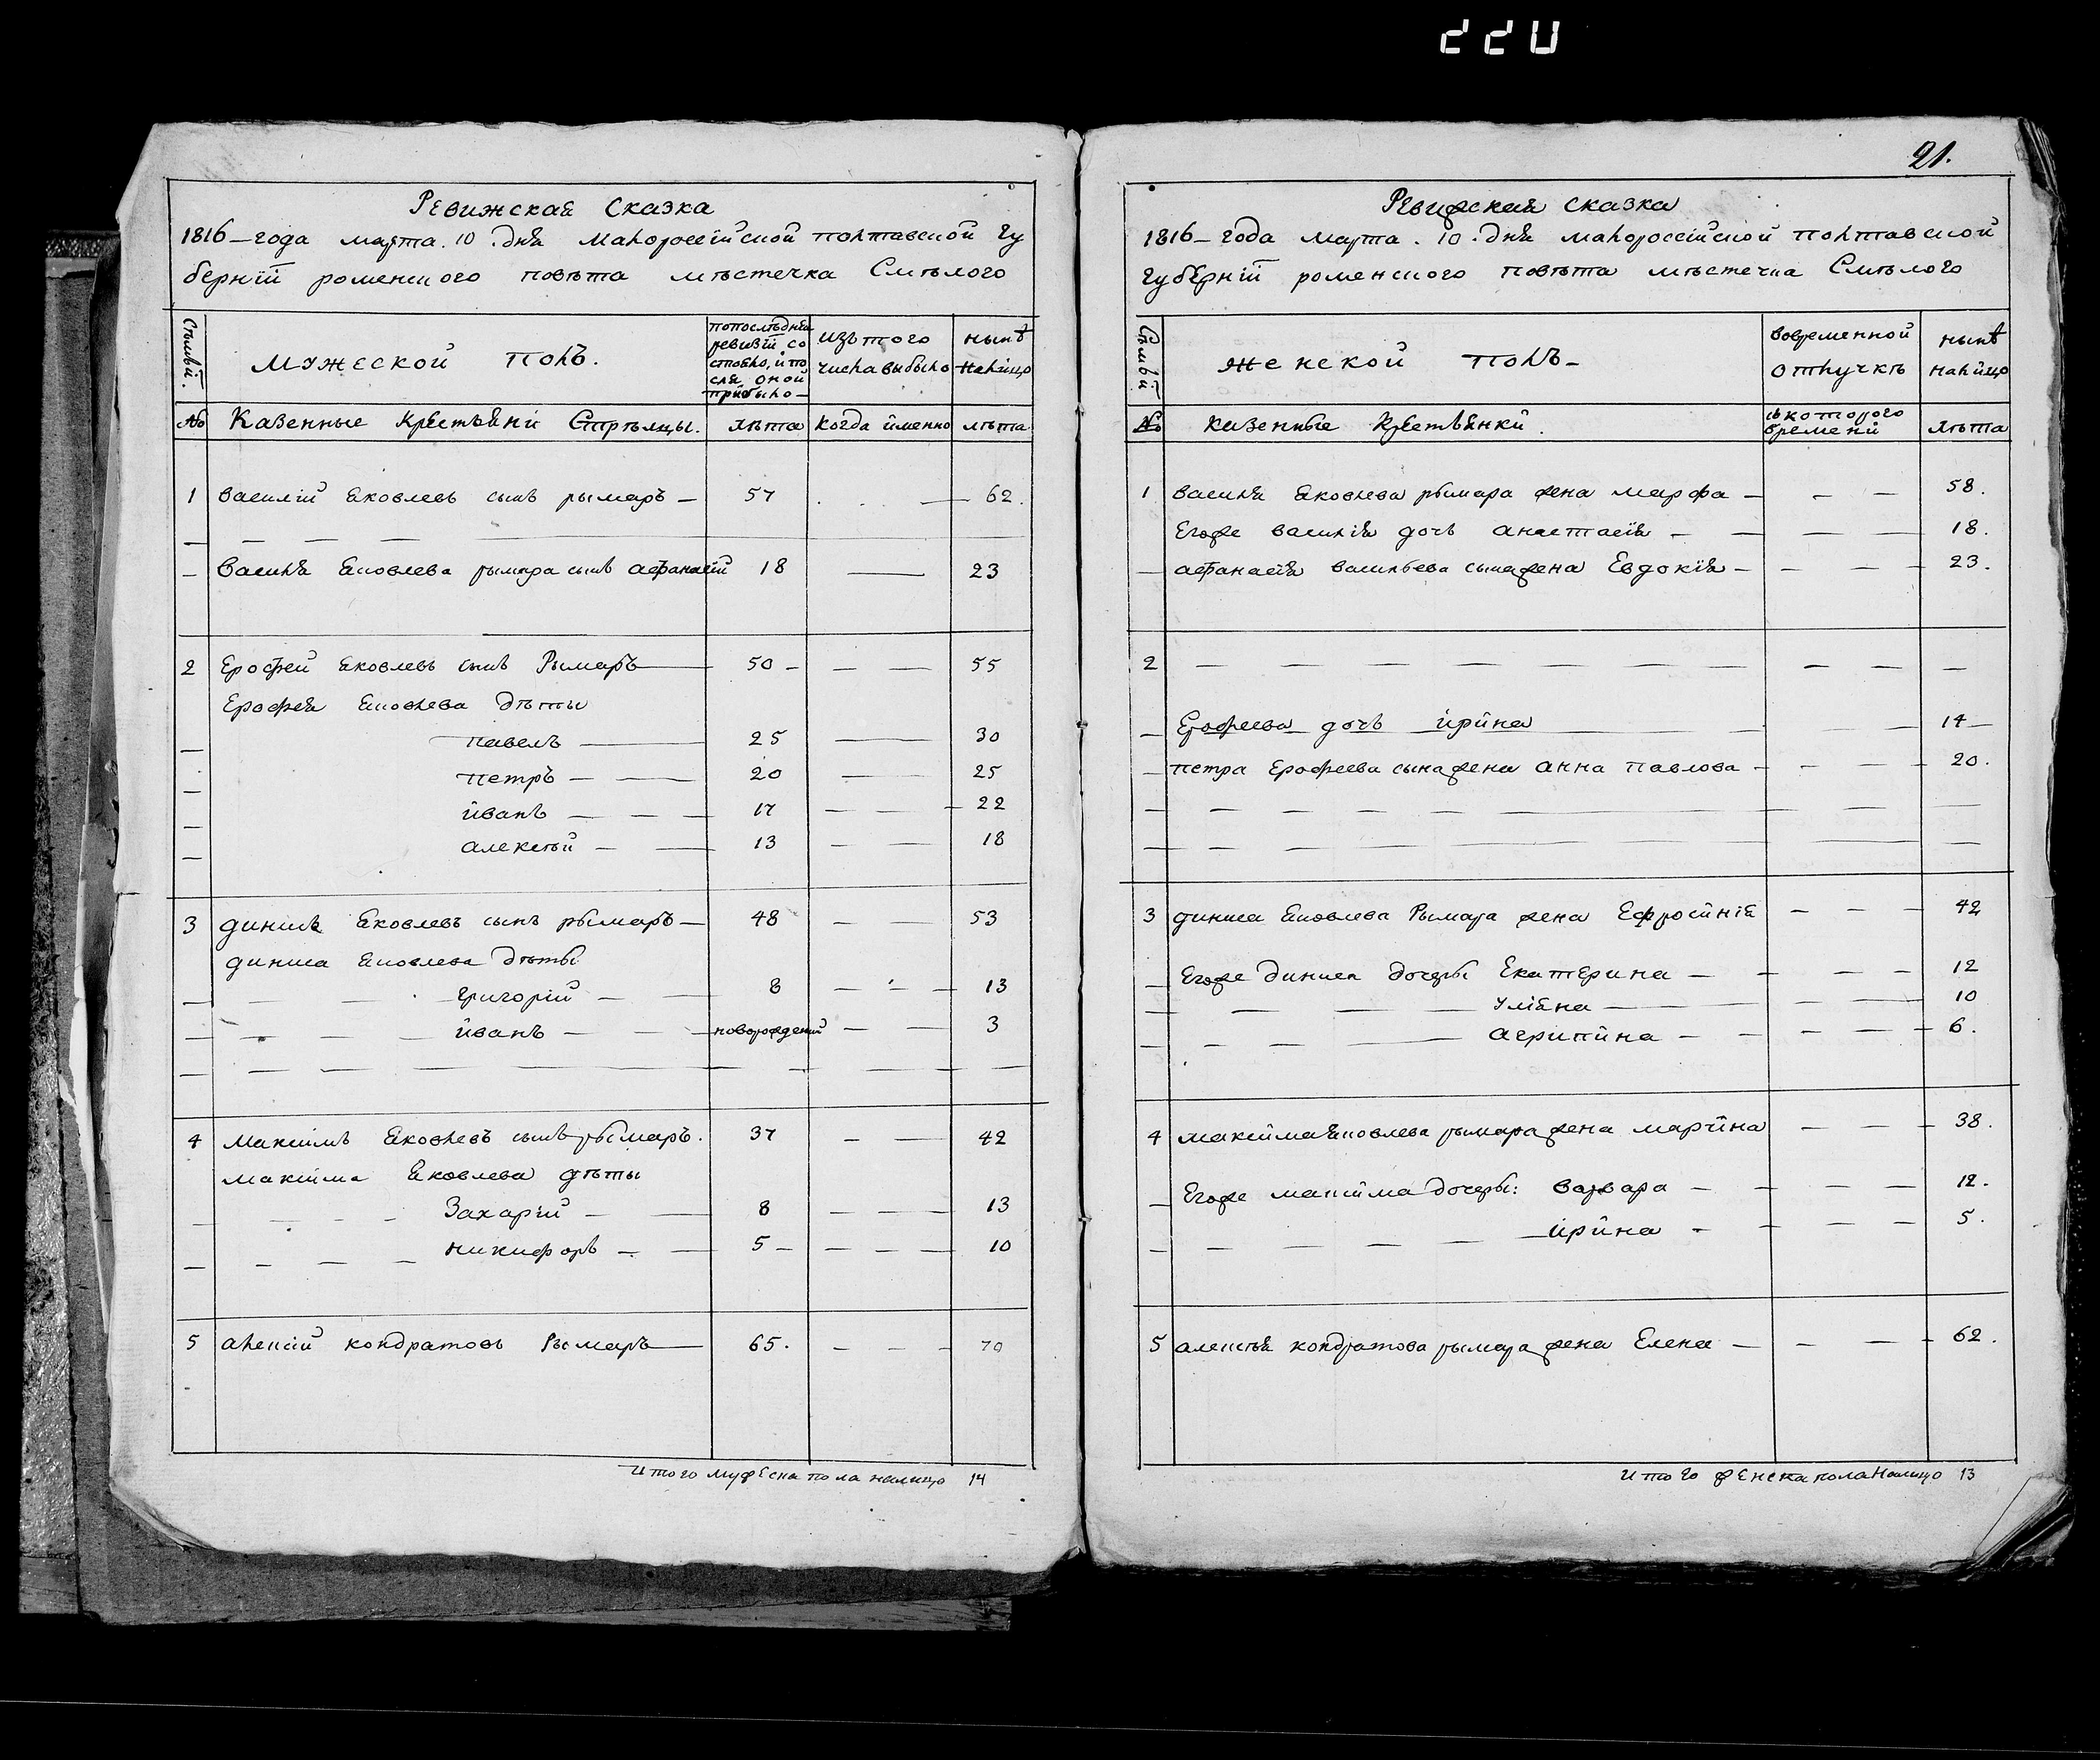 220
Ревижская Сказка
1816 – года марта. 10. дня Малороссійской полтавской гу
берніи роменского повѣта мѣстечка Смѣлого
Сѣмьи.
мужеской полъ.
попослѣдней ревизіи состояло, и после оной прибыло –
изъ того числа выбыло
нынѣ налицо
№ Казенные крестьяни Стрѣлцы. лѣта когда именно лѣта
1 василій яковлевъ сынъ рымаръ – 57 — 62.
василія яковлева рымара сынъ афанасій 18 — 23
2 Ерофей яковлевъ сынъ Рымаръ 50 – — 55
Ерофея яковлева дѣты
павелъ 25 — 30
петръ 20 — 25
иванъ 17 — 22
алексѣй 13 — 18
3 динисъ яковлевъ сынъ рымаръ – 48 — 53
диниса яковлева дѣты
григорій 8 — 13
иванъ новорожденій — 3
4 максимъ яковлевъ сынъ рымаръ. 37 — 42
максима яковлева дѣты
Захарій 8 — 13
никифоръ 5 – — 10
5 алексій кондратовъ Рымаръ 65. — 70
Итого мужеска пола налицо 14
21.
Ревижская сказка
1816 – года марта. 10. дня малороссійской полтавской
губерніи роменского повѣта мѣстечка Смѣлого
Сѣмьи
женской полъ –
вовременной отлучкѣ
нынѣ налицо
№ казенные крестьянки. съ котораго времени лѣта
1 василія яковлева рымара жена марфа – 58.
Егоже василія дочь анастасія – 18.
афанасія васильева сына жена Евдокія – 23.
2 — — —
Ерофеева дочь ирина 14 –
петра Ерофеева сына жена анна павлова – 20.
3 диниса яковлева Рымара жена Ефросинія 42
Егоже диниса дочеры Екатерина – 12
Уліяна 10
агрипина – 6.
4 максима яковлева рымара жена марина 38.
Егоже максима дочеры: варвара – 12.
ирина – 5.
5 алексѣя кондратова рымара жена Елена – 62.
Итого женска пола налицо 13